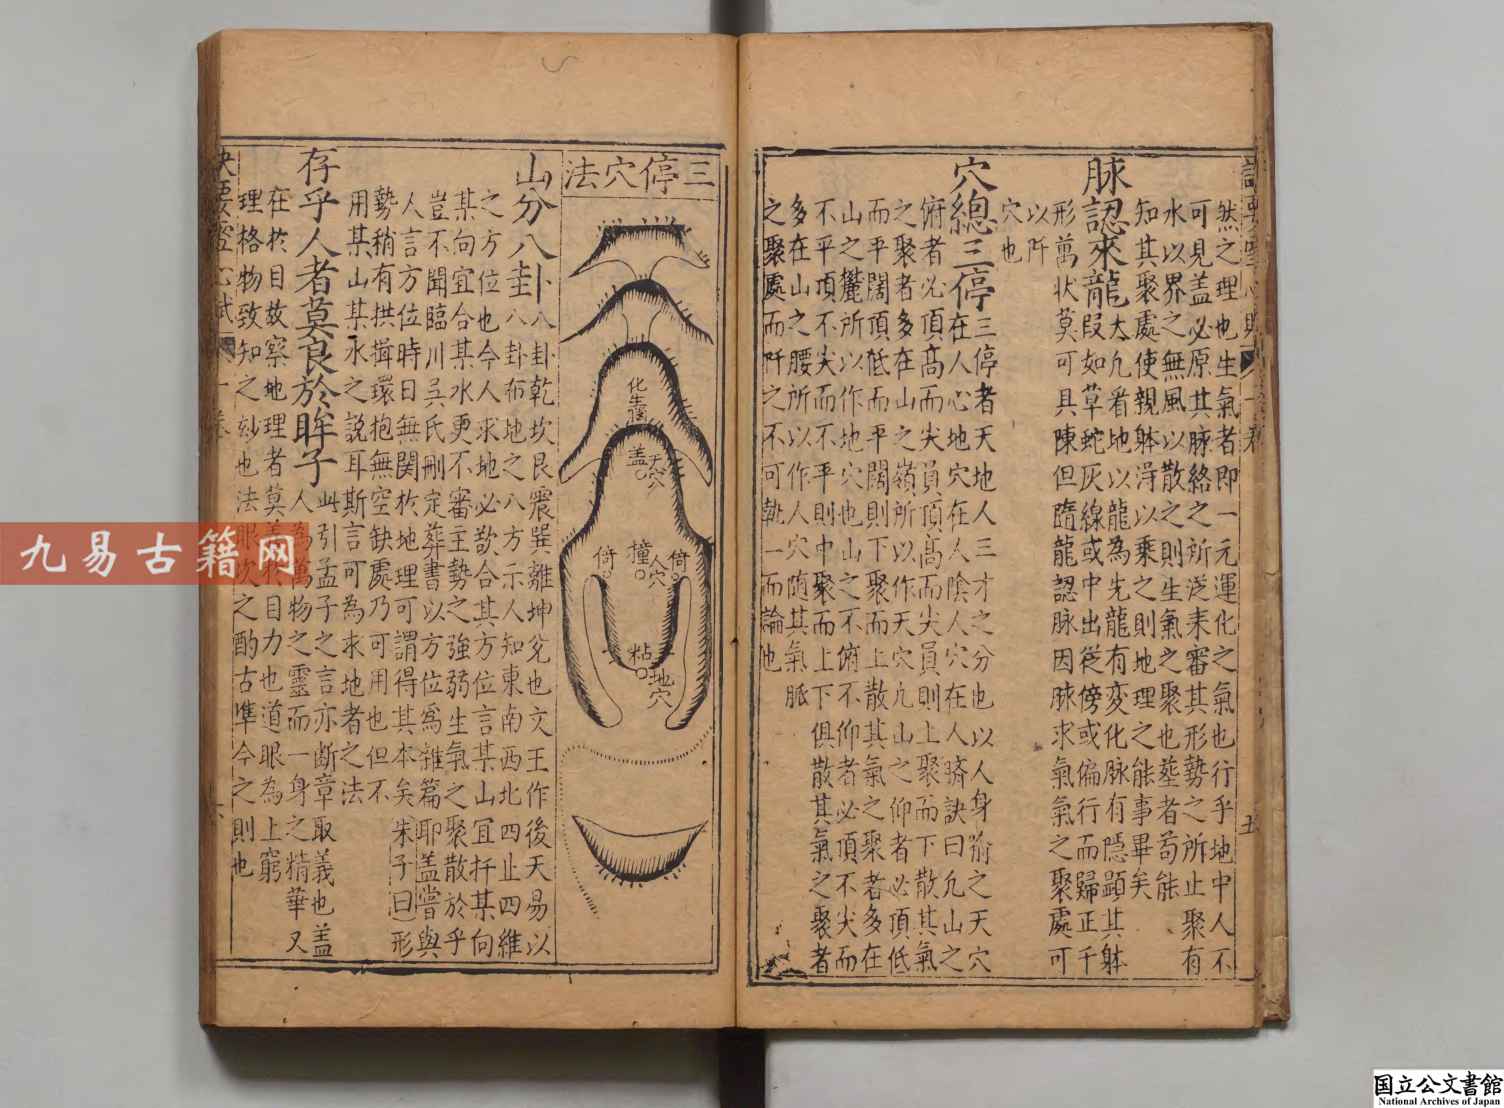 然之理也生氣者即一元運化之氣也行乎地中人不
可見盖必原其脉絡之所從来審其形勢之所止聚有
水以界之無風以散之則生氣之聚也塟者苟能
知其聚處使親躰淂以乘之則地理之能事畢矣
脉認来龍
大凢看地以龍為先龍有変化脉有隠顕其躰
叚如草蛇灰線或中出從傍或偏行而歸正千
形萬状莫可具陳但隨龍認脉因脉求氣氣之聚處可
以阡
穴也
穴總三停
三停者天地人三才之分也以人身前之天穴
在人心地穴在人陰人穴在人臍訣曰凢山之
俯者必頂髙而尖員頂髙而尖員則上聚而下散其氣
之聚者多在山之嶺所以作天穴凢山之仰者必頂低
而平闊頂低而平闊則下聚而上散其氣之聚者多在
山之麓所以作地穴也山之不俯不仰者必頂不尖而
不平頂不尖而不平則中聚而上下俱散其氣之聚者
多在山之腰所以作人穴随其氣脈
之聚處而阡之不可執一而論也
三停穴法
化生腦
盖
天穴
倚
撞
人穴
倚
粘
地穴
山分八卦
八卦乾坎艮震巽離坤兊也文王作後天易以
八卦布地之八方示人知東南西北四止四維
之方位也今人求地必欲合其方位言某山宜扦某向
某向宜合某水更不審主勢之強弱生氣之聚散於乎
豈不聞臨川吳氏刪定葬書以方位為雜篇耶盖嘗與
人言方位時日無関於地理可謂得其本矣朱子曰形
勢稍有拱揖環抱無空缺處乃可用也但不
用某山某水之說耳斯言可為求地者之法
存乎人者莫良於眸子
此引孟子之言亦断章取義也盖
人為萬物之靈而一身之精華又
在於目故察地理者莫善於目力也道眼為上窮
理格物致知之妙也法眼次之酌古凖今之則也
九易古籍网
国立公文書館
National Archives of Japan